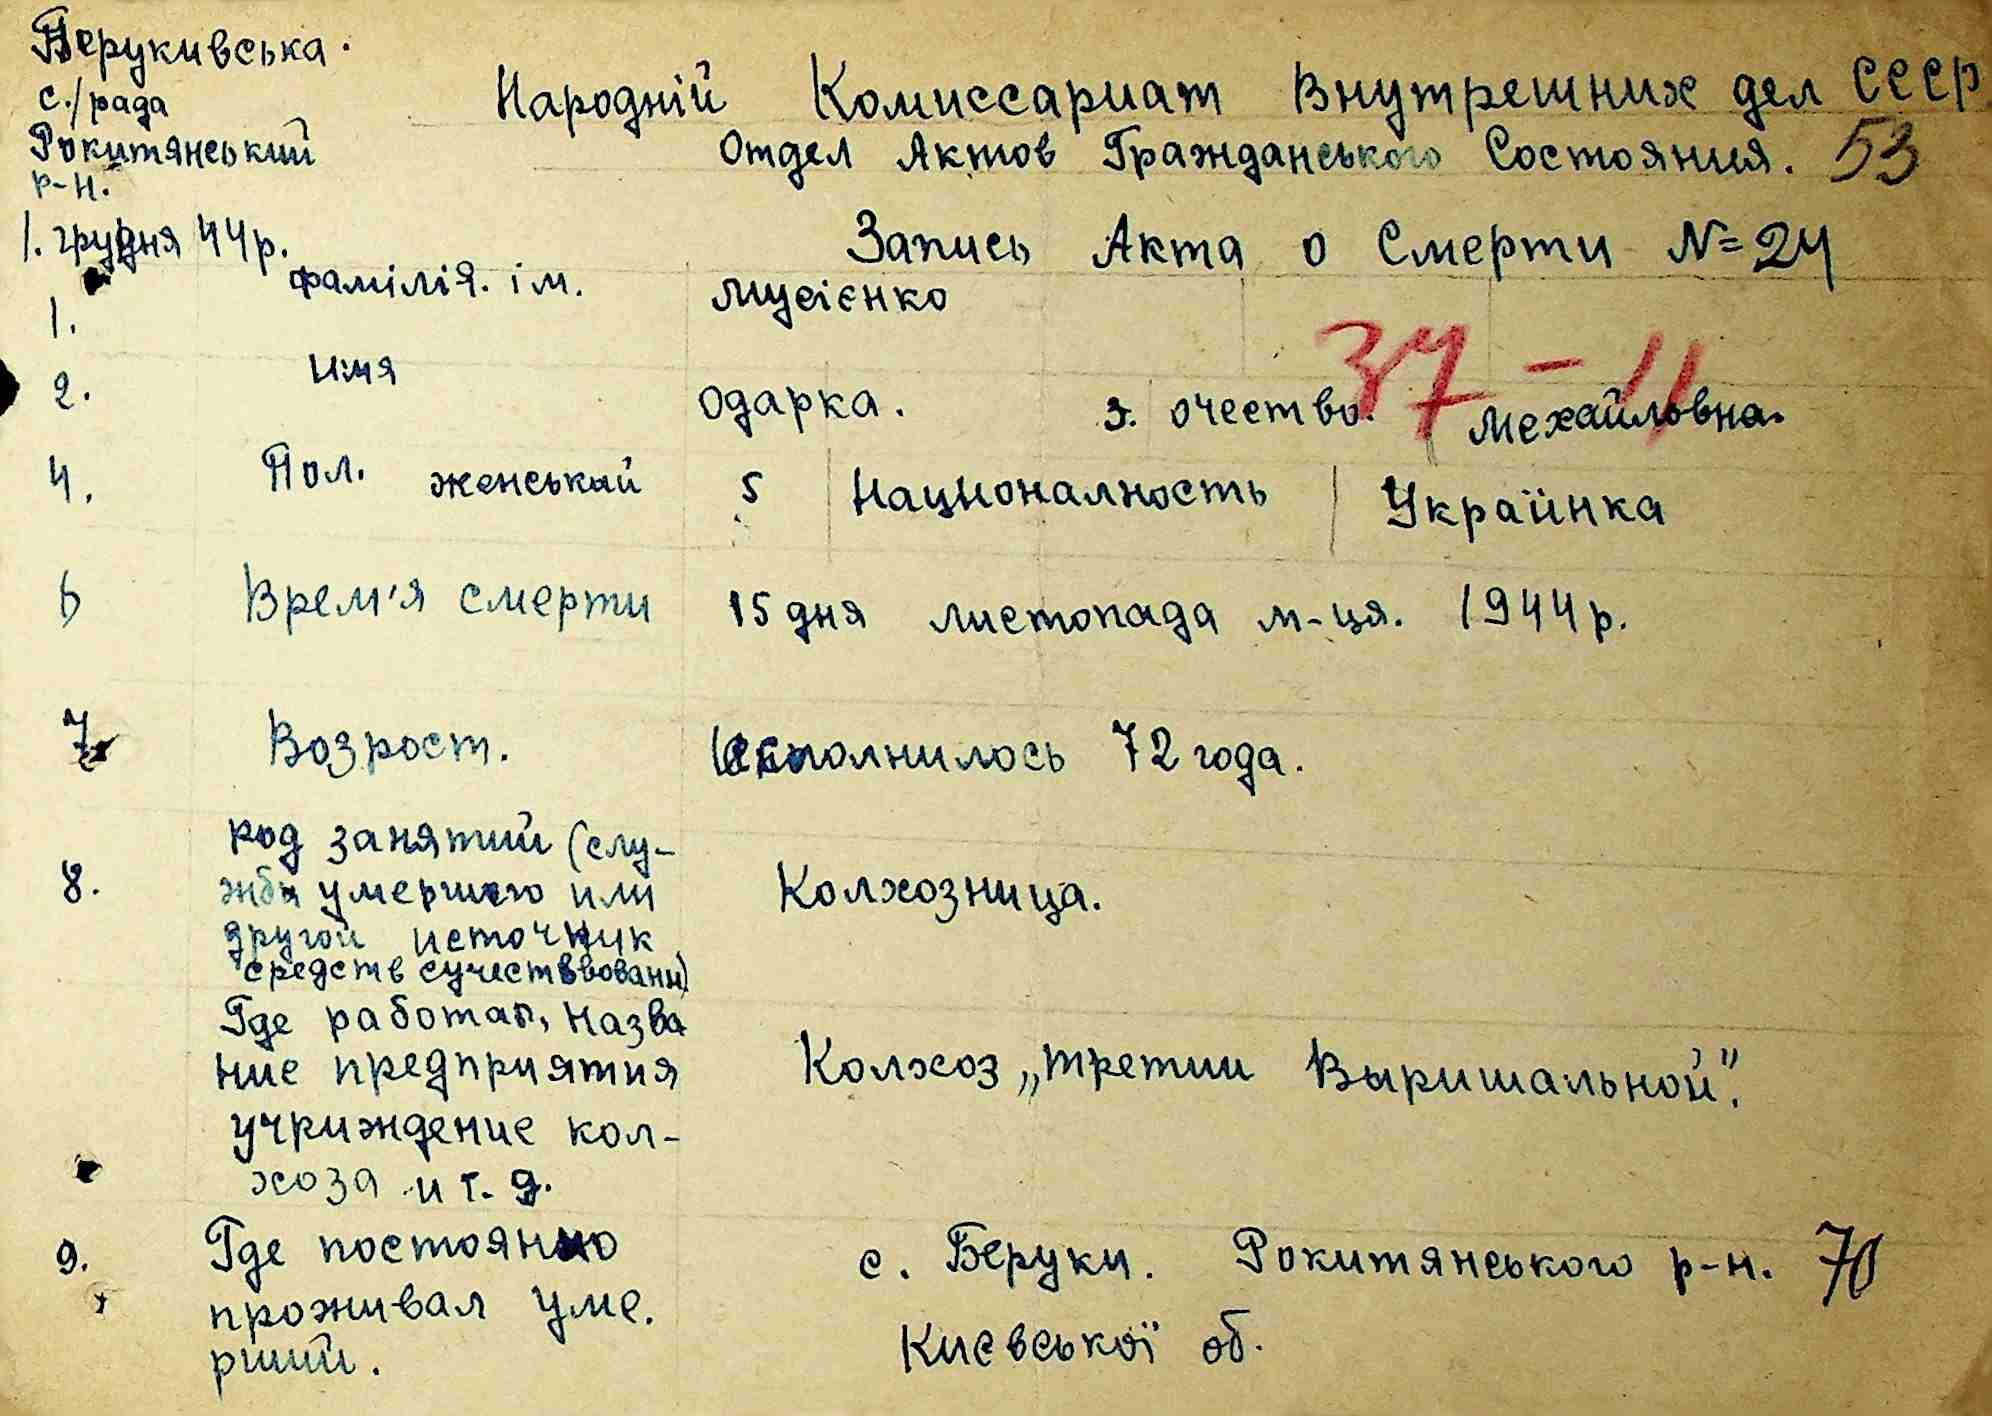 Берукивська.
с./рада
Рокитянський
р-н.
1. грудня 44р.
Народній Комиссариат Внутрешних дел СССР
Отдел Актов Гражданського Состояния. 53
Запись Акта о Смерти N=24
1. фамілія. ім. Мусієнко
37-11
2. имя Одарка. 3. очество. Мехайловна.
4. Пол. женський 5 Националность Україінка
6 Врем'я смерти 15 дня листопада м-ця. 1944р.
7 Возрост. исполнилось 72 года.
8. код занятий (слу-
жба умершего или
другой источник
средств сучествовани)
Колхозница.
Где работал, назва
ние предприятия
учриждение кол-
хоза и т. д.
Колхоз „третии Выришальной".
9. Где постоянно
проживал уме.
рший.
с. Беруки. Рокитянського р-н. 70
Києвської об.